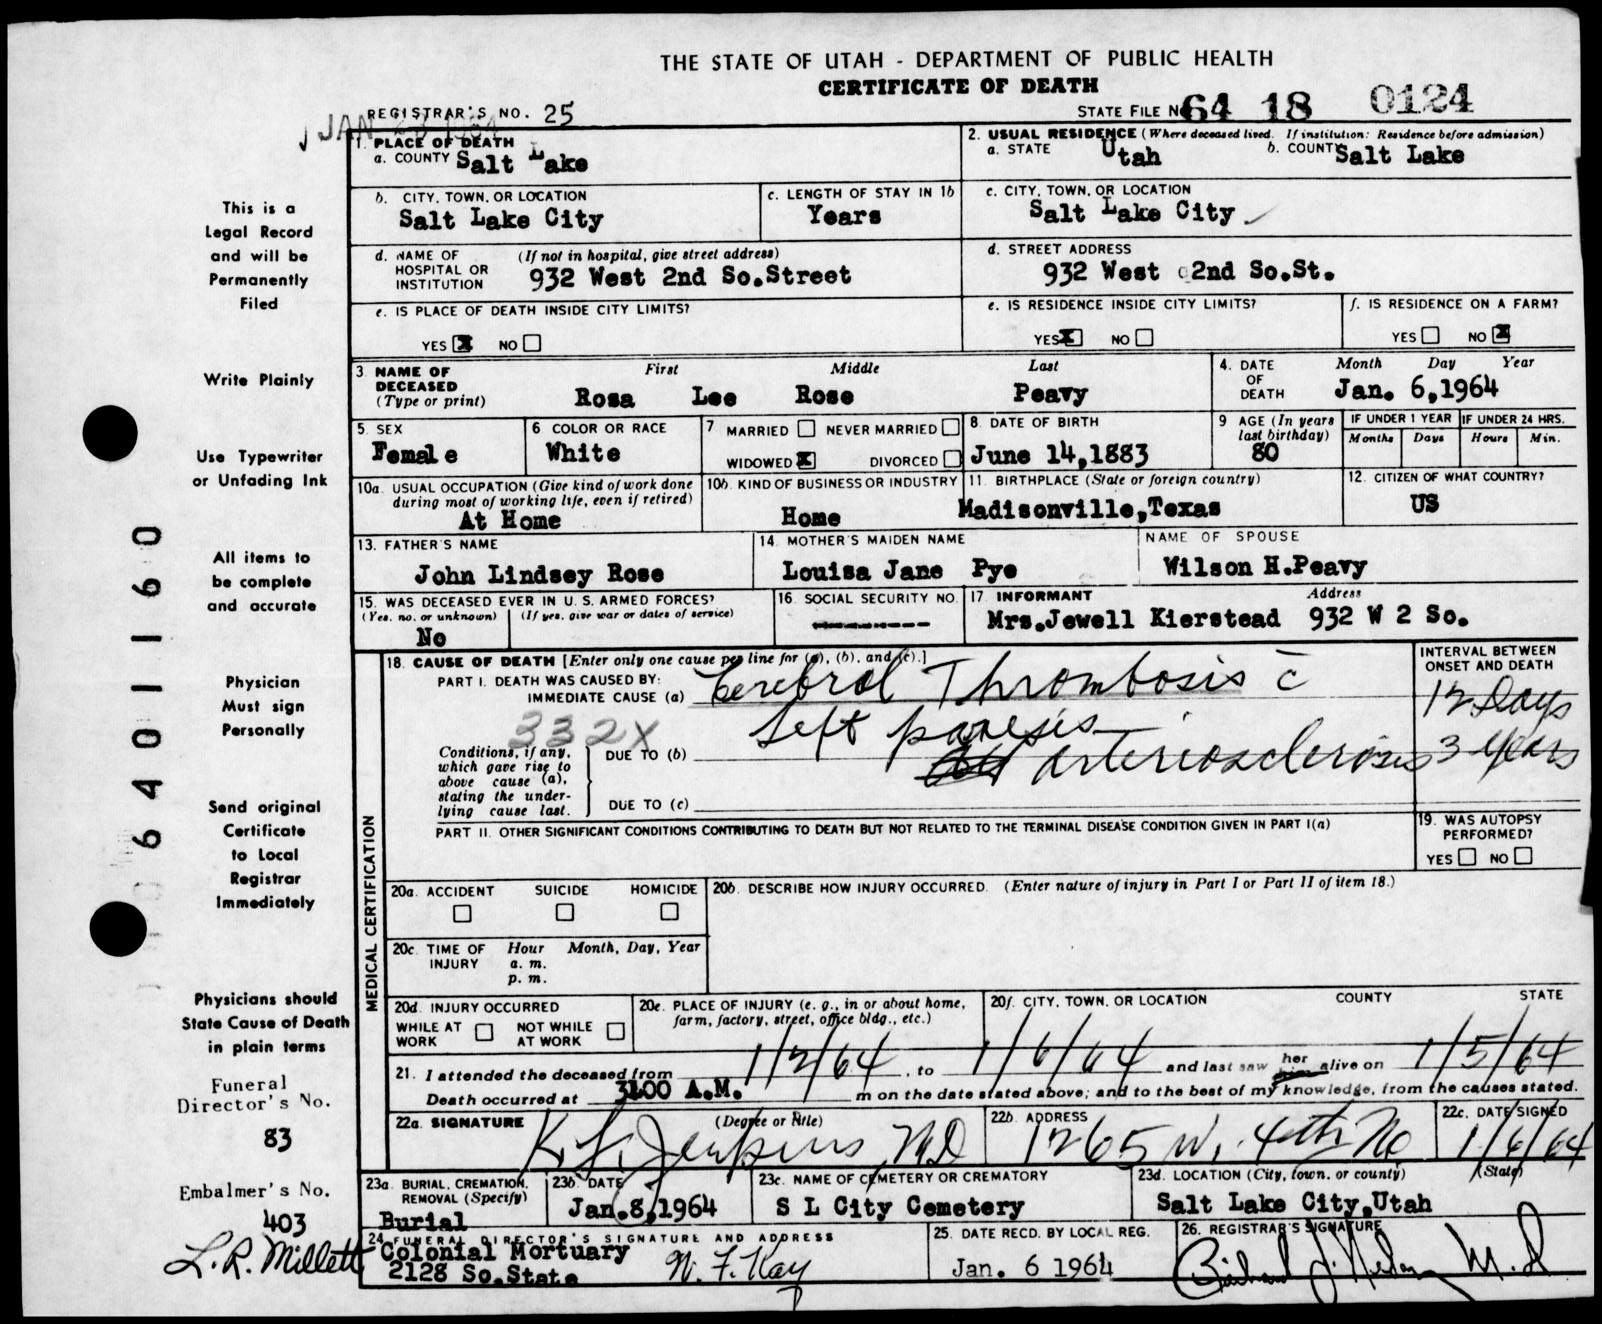 THE STATE OF UTAH - DEPARTMENT OF PUBLIC HEALTH
CERTIFICATE OF DEATH
REGISTRAR'S NO. 25
STATE FILE NO. 64 18 0124
JAN 23 1964
1. PLACE OF DEATH
a. COUNTY Salt Lake
2. USUAL RESIDENCE (Where deceased lived. If institution: Residence before admission)
a. STATE Utah b. COUNTY Salt Lake
b. CITY, TOWN, OR LOCATION
Salt Lake City
c. LENGTH OF STAY IN 1b
Years
c. CITY, TOWN, OR LOCATION
Salt Lake City
d. NAME OF HOSPITAL OR INSTITUTION (If not in hospital, give street address)
932 West 2nd So.Street
d. STREET ADDRESS
932 West 2nd So.St.
e. IS PLACE OF DEATH INSIDE CITY LIMITS?
YES X NO
e. IS RESIDENCE INSIDE CITY LIMITS?
YES X NO
f. IS RESIDENCE ON A FARM?
YES NO X
3. NAME OF DECEASED (Type or print)
First Middle Last
Rosa Lee Rose Peavy
4. DATE OF DEATH Month Day Year
Jan. 6,1964
5. SEX
Female
6 COLOR OR RACE
White
7 MARRIED NEVER MARRIED
WIDOWED X DIVORCED
8. DATE OF BIRTH
June 14,1883
9 AGE (In years last birthday)
80
IF UNDER 1 YEAR IF UNDER 24 HRS.
Months Days Hours Min.
10a. USUAL OCCUPATION (Give kind of work done during most of working life, even if retired)
At Home
10b. KIND OF BUSINESS OR INDUSTRY
Home
11. BIRTHPLACE (State or foreign country)
Madisonville,Texas
12. CITIZEN OF WHAT COUNTRY?
US
13. FATHER'S NAME
John Lindsey Rose
14. MOTHER'S MAIDEN NAME
Louisa Jane Pye
NAME OF SPOUSE
Wilson H.Peavy
15. WAS DECEASED EVER IN U. S. ARMED FORCES?
(Yes, no, or unknown) (If yes, give war or dates of service)
No
16. SOCIAL SECURITY NO.
----------
17. INFORMANT Address
Mrs.Jewell Kierstead 932 W 2 So.
MEDICAL CERTIFICATION
18. CAUSE OF DEATH [Enter only one cause per line for (a), (b), and (c).]
PART I. DEATH WAS CAUSED BY:
IMMEDIATE CAUSE (a) Cerebral Thrombosis c̄
left paresis
332X
Conditions, if any, which gave rise to above cause (a), stating the underlying cause last.
DUE TO (b) arteriosclerosis
DUE TO (c)
INTERVAL BETWEEN ONSET AND DEATH
12 Days
3 years
PART II. OTHER SIGNIFICANT CONDITIONS CONTRIBUTING TO DEATH BUT NOT RELATED TO THE TERMINAL DISEASE CONDITION GIVEN IN PART I(a)
19. WAS AUTOPSY PERFORMED?
YES NO
20a. ACCIDENT SUICIDE HOMICIDE
20b. DESCRIBE HOW INJURY OCCURRED. (Enter nature of injury in Part I or Part II of item 18.)
20c. TIME OF INJURY Hour Month, Day, Year
a. m.
p. m.
20d. INJURY OCCURRED
WHILE AT WORK NOT WHILE AT WORK
20e. PLACE OF INJURY (e. g., in or about home, farm, factory, street, office bldg., etc.)
20f. CITY, TOWN, OR LOCATION COUNTY STATE
21. I attended the deceased from 1/2/64, to 1/6/64 and last saw her him alive on 1/5/64
Death occurred at 3:00 A.M. m on the date stated above; and to the best of my knowledge, from the causes stated.
22a. SIGNATURE (Degree or title)
K. L. Jenkins, MD
22b. ADDRESS
1265 W. 4th No
22c. DATE SIGNED
1/6/64
23a. BURIAL, CREMATION, REMOVAL (Specify)
Burial
23b. DATE
Jan.8,1964
23c. NAME OF CEMETERY OR CREMATORY
S L City Cemetery
23d. LOCATION (City, town, or county) (State)
Salt Lake City,Utah
24. FUNERAL DIRECTOR'S SIGNATURE AND ADDRESS
Colonial Mortuary
2128 So.State
W. F. Kay
25. DATE RECD. BY LOCAL REG.
Jan. 6 1964
26. REGISTRAR'S SIGNATURE
Richard J. Nelson M.D
This is a
Legal Record
and will be
Permanently
Filed
Write Plainly
Use Typewriter
or Unfading Ink
All items to
be complete
and accurate
Physician
Must sign
Personally
Send original
Certificate
to Local
Registrar
Immediately
Physicians should
State Cause of Death
in plain terms
Funeral
Director's No.
83
Embalmer's No.
403
L. R. Millett
6401160